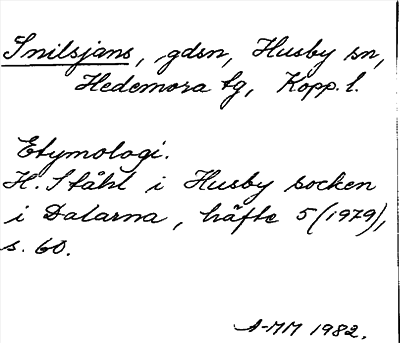 Snilsjans, gdsn, Husby sn,
Hedemora tg, Kopp. l.
Etymologi.
H. Ståhl i Husby socken
i Dalarna, häfte 5 (1979),
s. 60.
A-MM 1982.